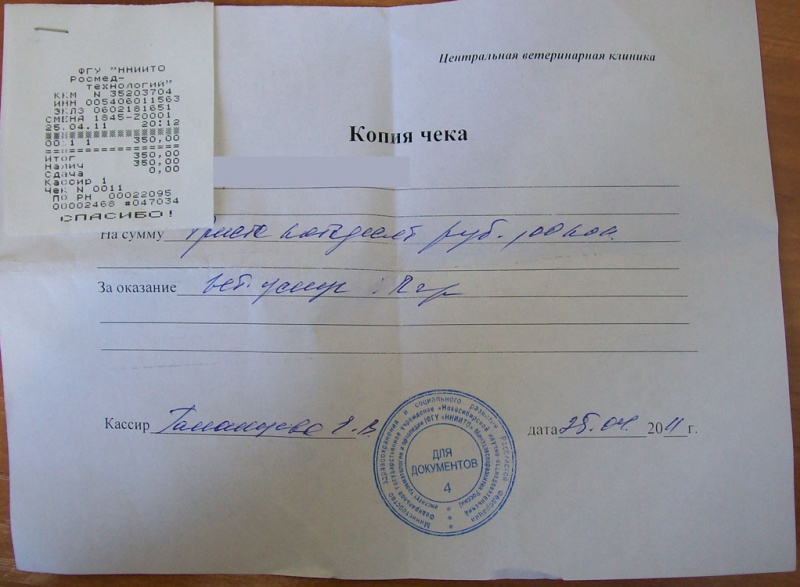 ФГУ "ННИИТО
Росмед-
технологий"
ККМ N 35203704
ИНН 005406011563
ЭКЛЗ 0602181651
СМЕНА 1845-Z0001
25.04.11 20:12
00:1 1 350,00
Итог 350,00
Налич 350,00
Сдача 0,00
Кассир 1
Чек N 0011
ПО РН 00022095
00002468 #047034
СПАСИБО!
Центральная ветеринарная клиника
Копия чека
На сумму триста пятьдесят руб. 00 коп.
За оказание вет. услуг
Кассир
дата 25.04. 2011 г.
ДЛЯ
ДОКУМЕНТОВ
4